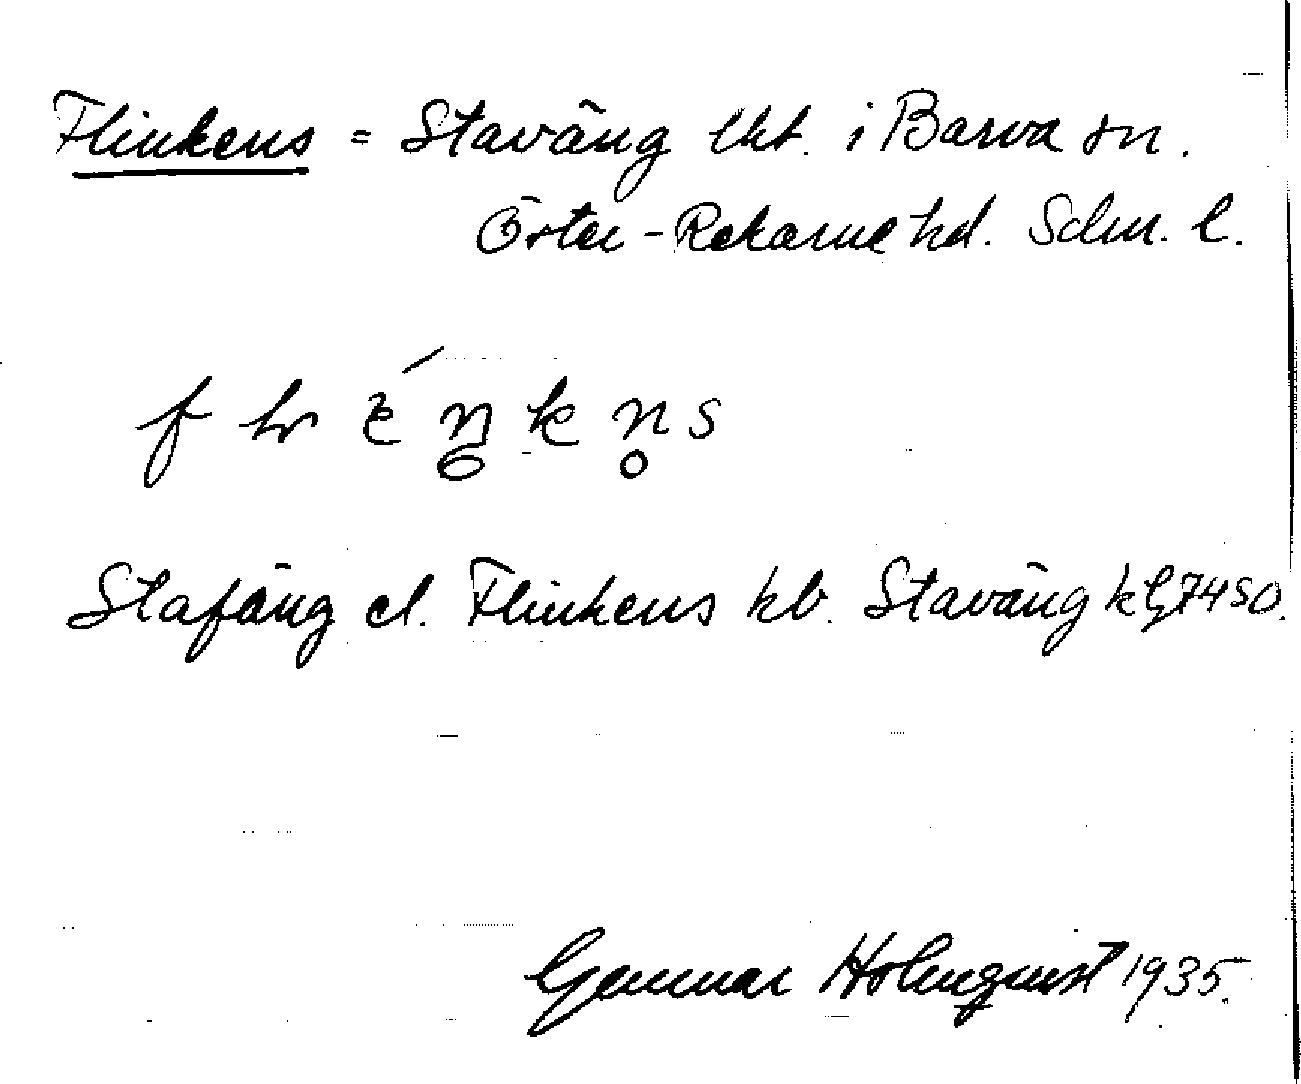 Flinkens = Staväng lht. i Barva sn.
Öster-Rekarne hd. Sdm. l.
Stafäng el. Flinkens kb. Staväng
Gunnar Holmquist 1935.